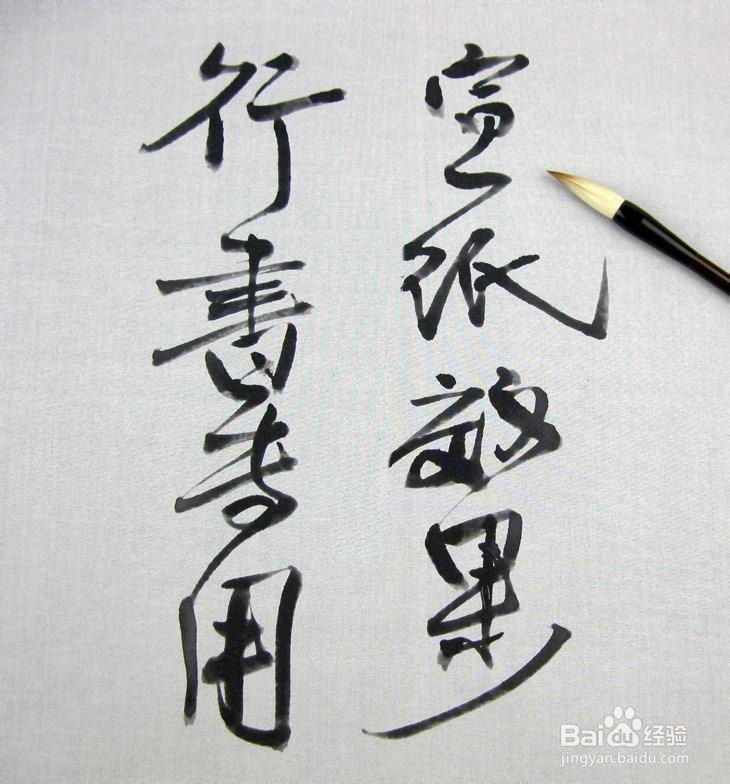 宣纸效果
行書专用
Baidu经验
jingyan.baidu.com